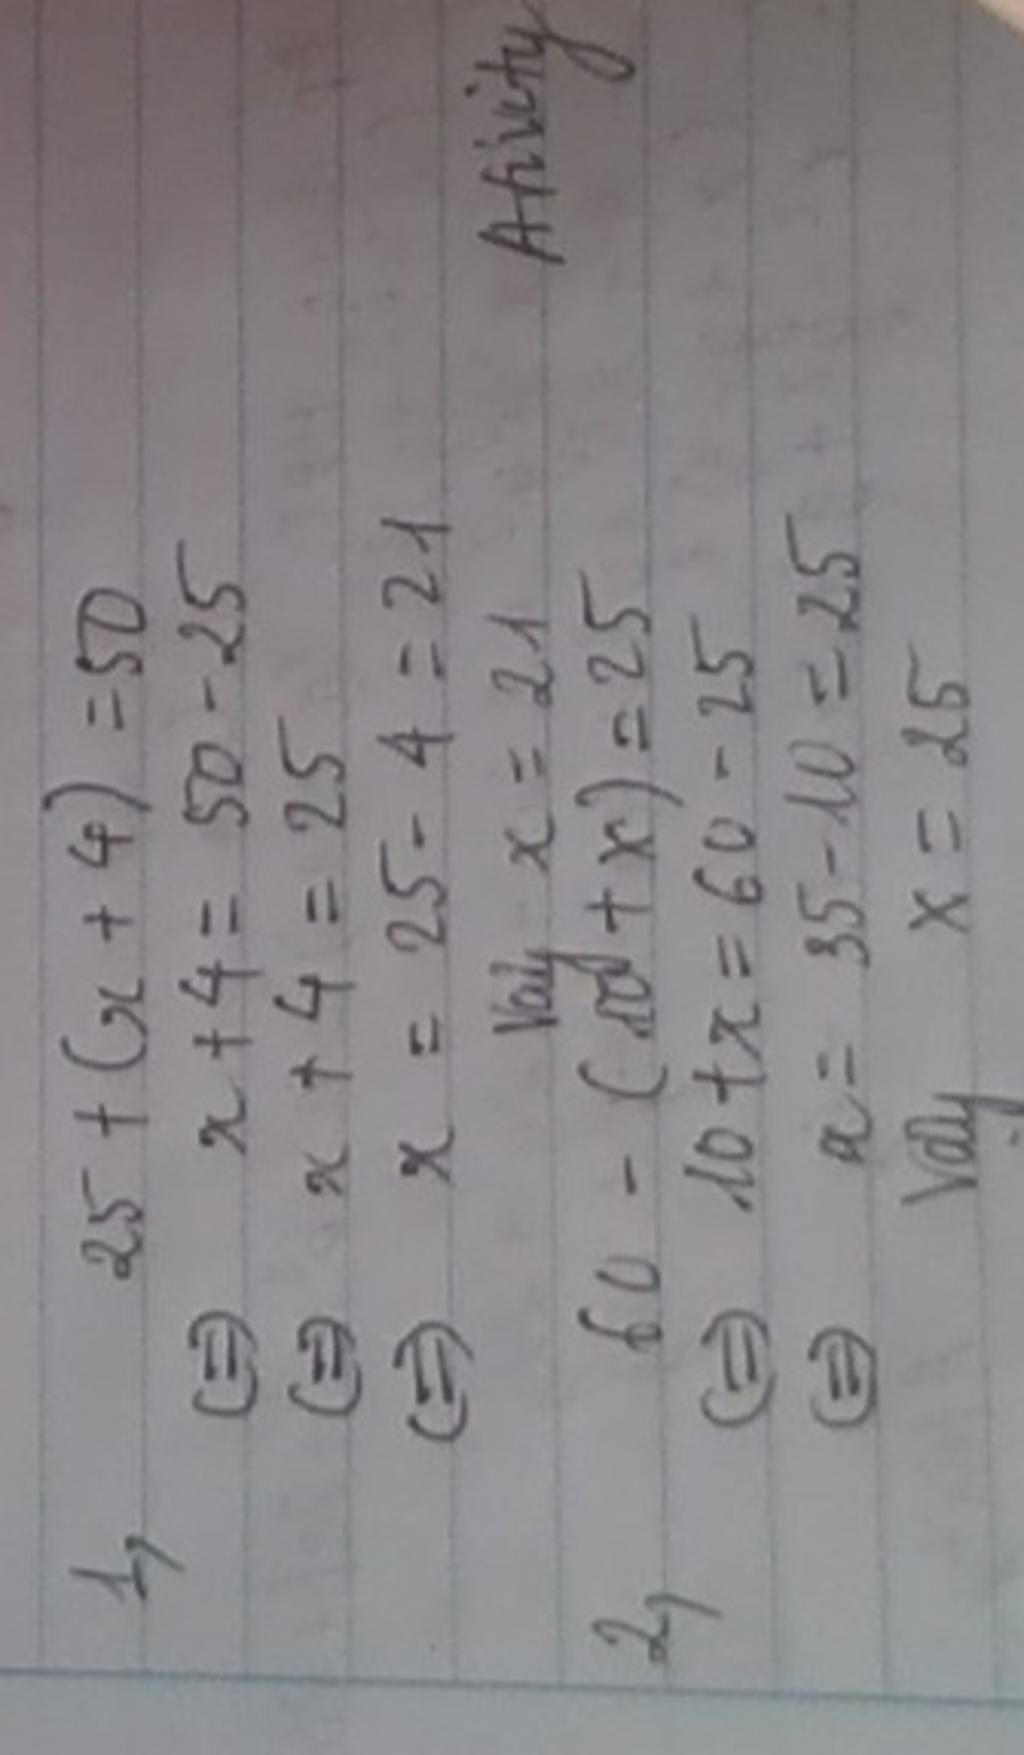 1, 25 + (x + 4) = 50
(=) x + 4 = 50 - 25
(=) x + 4 = 25
(=) x = 25 - 4 = 21
Vậy x = 21
Afivity
2, 60 - (10 + x) = 25
(=) 10 + x = 60 - 25
(=) x = 35 - 10 = 25
Vậy x = 25